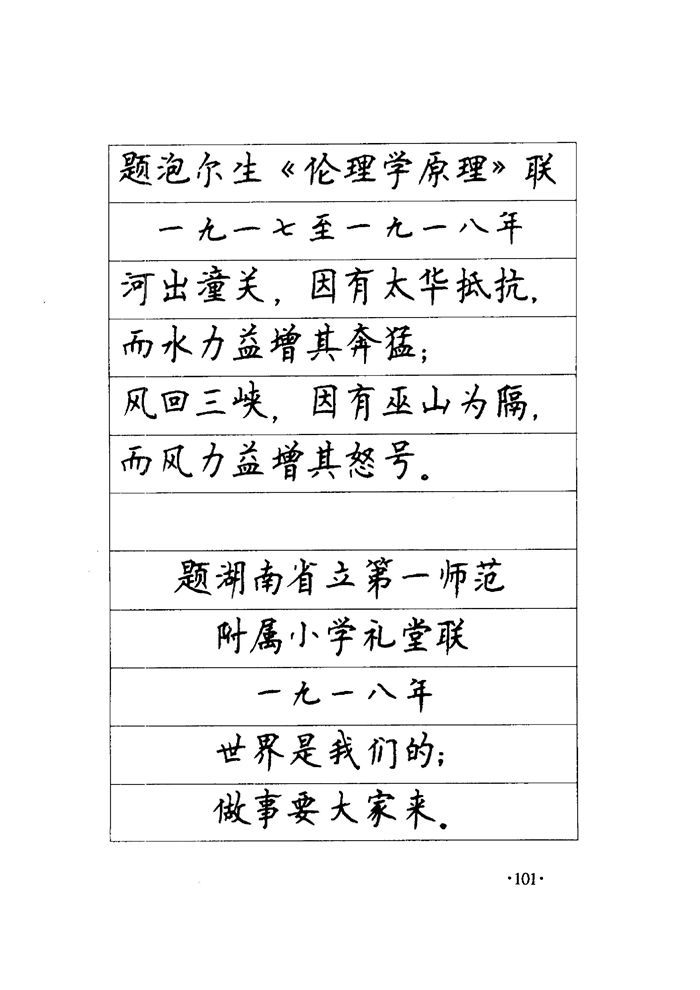 题泡尔生《伦理学原理》联
一九一七至一九一八年
河出潼关，因有太华抵抗，
而水力益增其奔猛；
风回三峡，因有巫山为隔，
而风力益增其怒号。
题湖南省立第一师范
附属小学礼堂联
一九一八年
世界是我们的；
做事要大家来。
·101·